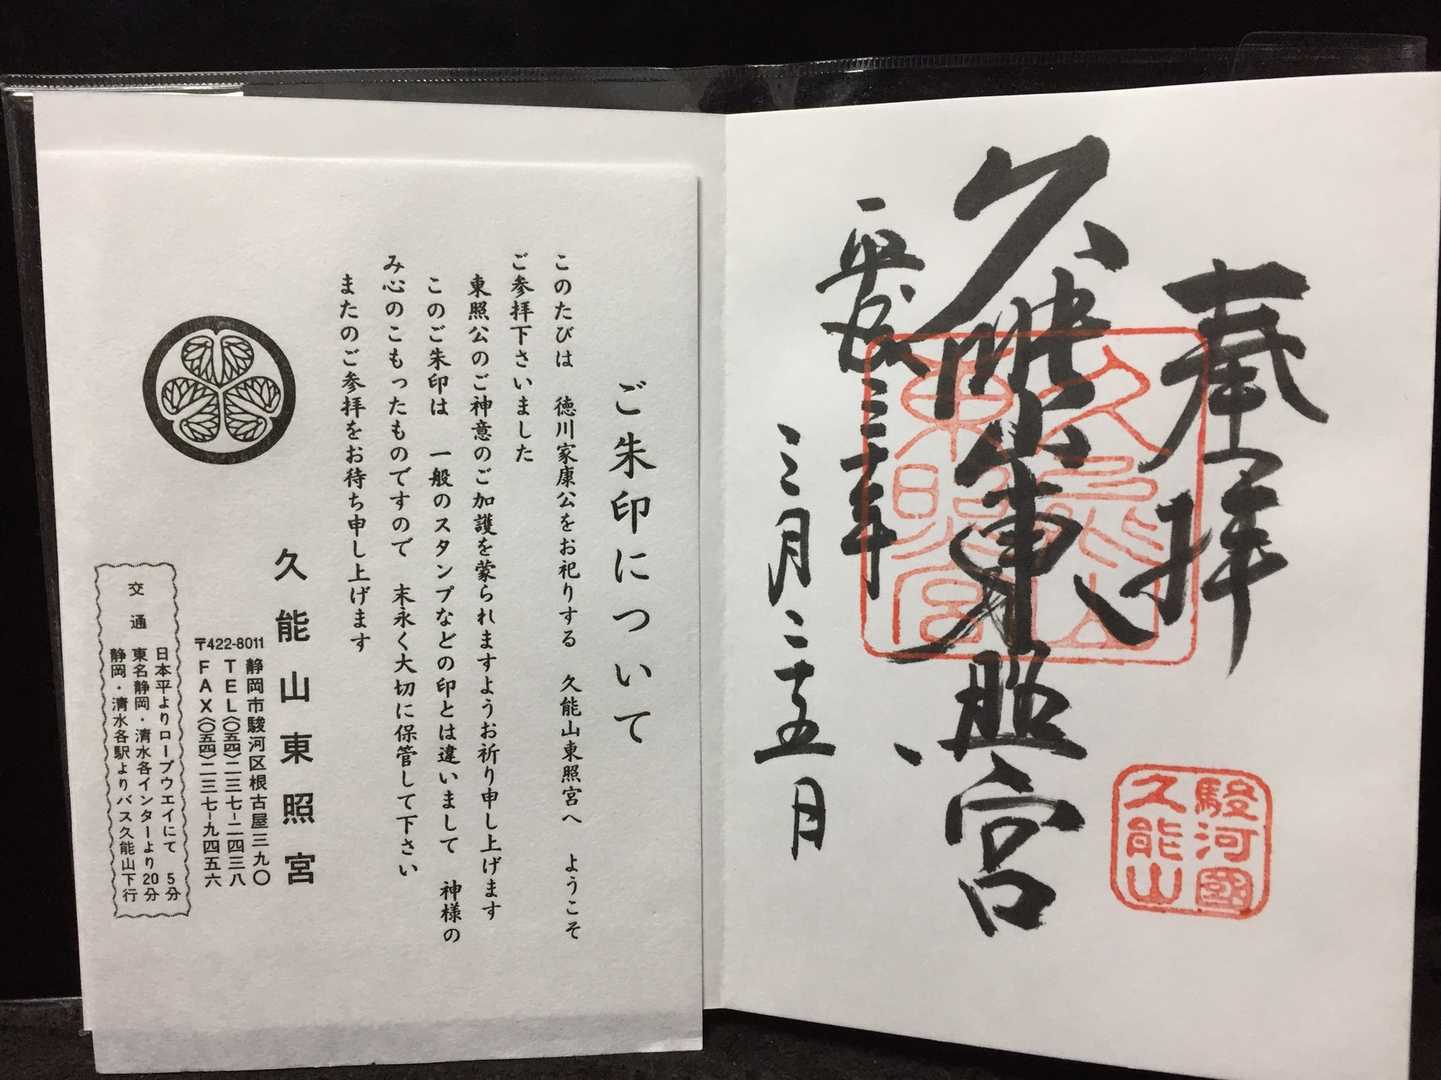 奉拝
久能山東照宮
平成三十年
三月二十五日
久能山
東照宮
駿河國
久能山
ご朱印について
このたびは 徳川家康公をお祀りする 久能山東照宮へ ようこそ
ご参拝下さいました
東照公のご神意のご加護を蒙られますようお祈り申し上げます
このご朱印は 一般のスタンプなどの印とは違いまして 神様の
み心のこもったものですので 末永く大切に保管して下さい
またのご参拝をお待ち申し上げます
久能山東照宮
〒422-8011
静岡市駿河区根古屋三九〇
TEL〈〇五四〉二三七-二四三八
FAX〈〇五四〉二三七-九四五六
交通
日本平よりロープウエイにて 5分
東名静岡・清水各インターより20分
静岡・清水各駅よりバス久能山下行